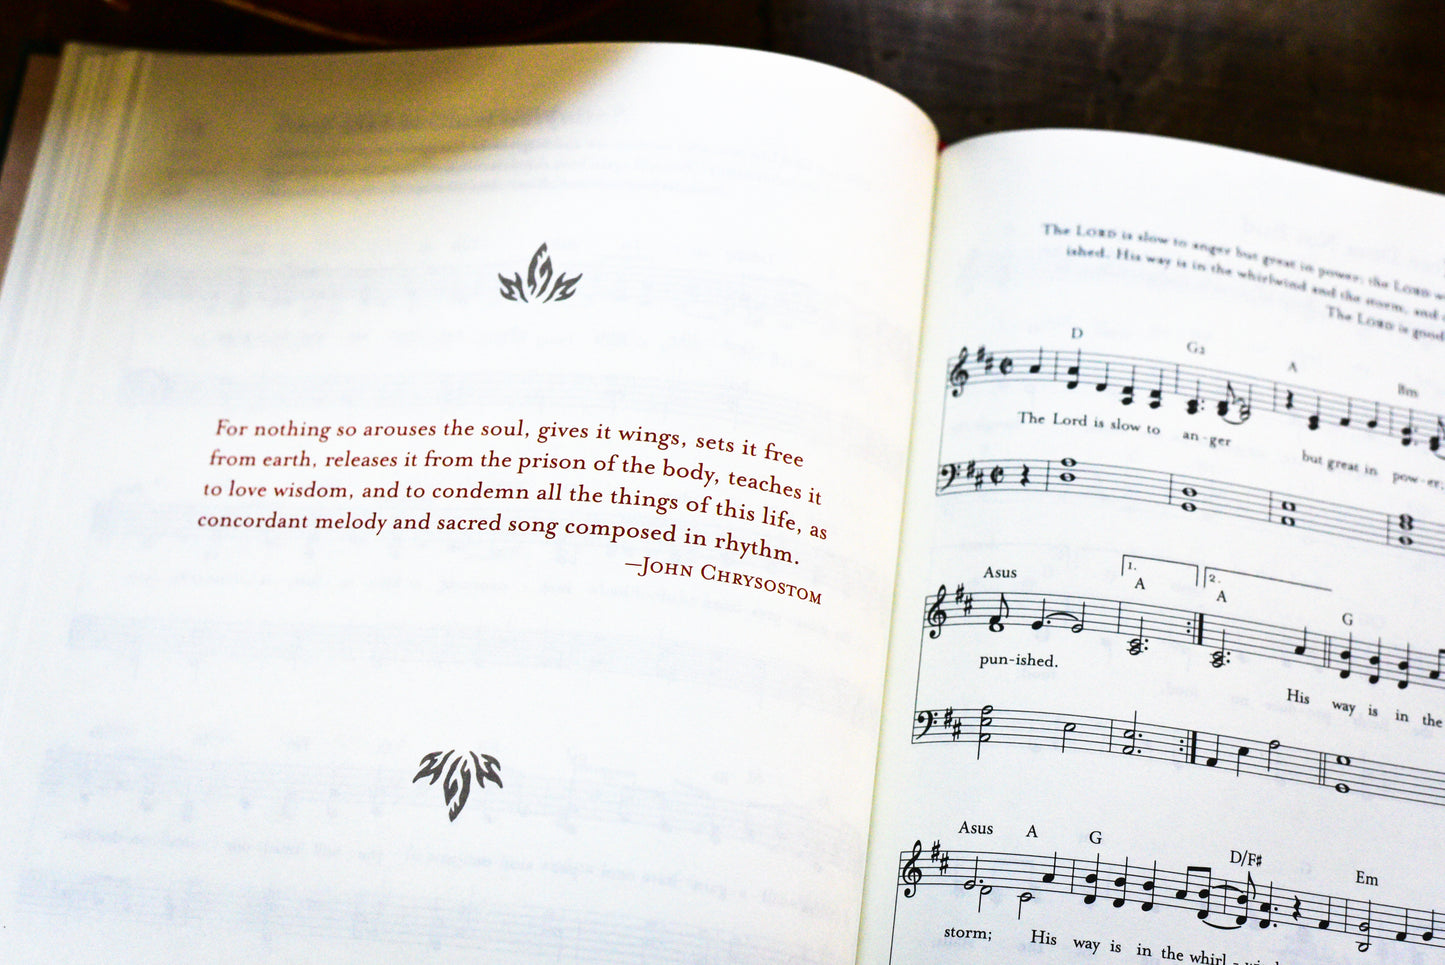 For nothing so arouses the soul, gives it wings, sets it free
from earth, releases it from the prison of the body, teaches it
to love wisdom, and to condemn all the things of this life, as
concordant melody and sacred song composed in rhythm.
—John Chrysostom
The LORD is slow to anger but great in power; the LORD
ished. His way is in the whirlwind and the storm, and
The LORD is good
D G2 A Bm
The Lord is slow to an-ger but great in pow-er;
Asus 1. A 2. A G
pun-ished. His way is in the
Asus A G D/F# Em
storm; His way is in the whirl-